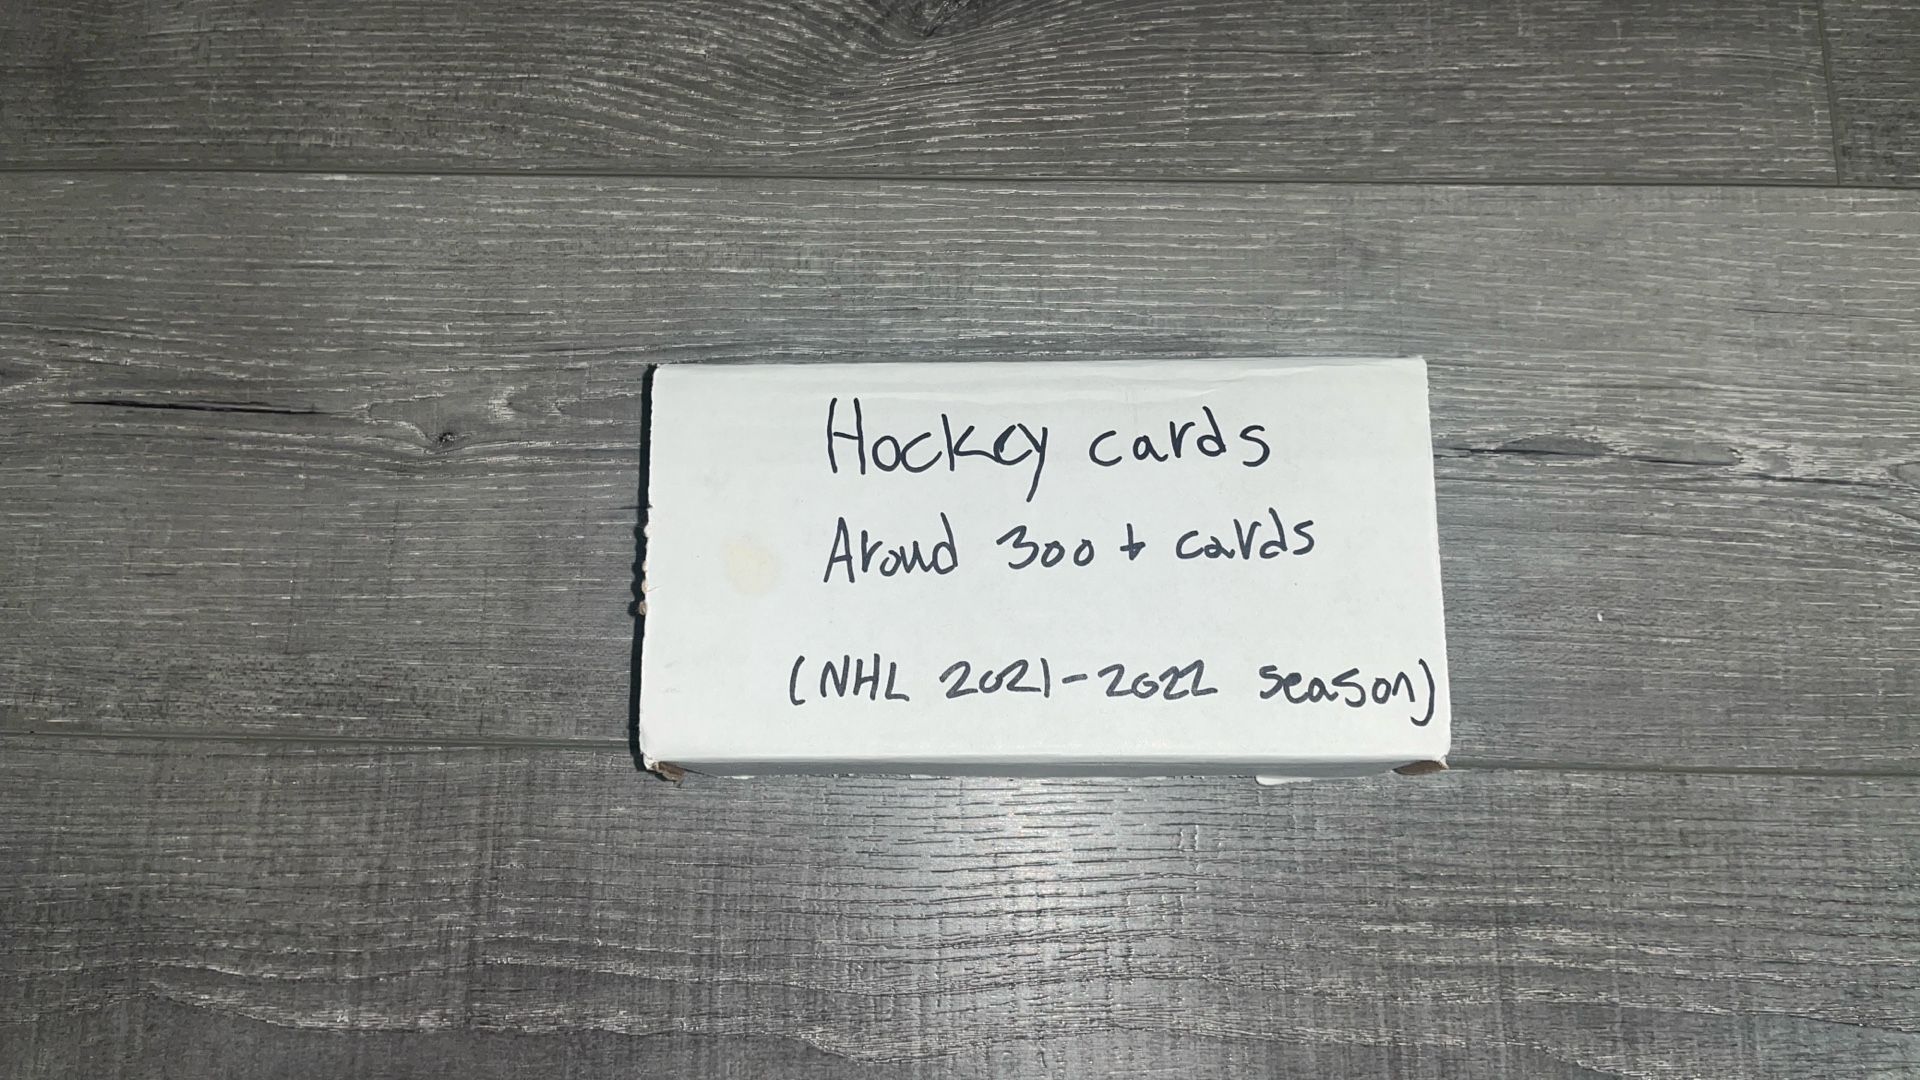 Hockey cards
Aroud 300 + cards
(NHL 2021-2022 season)